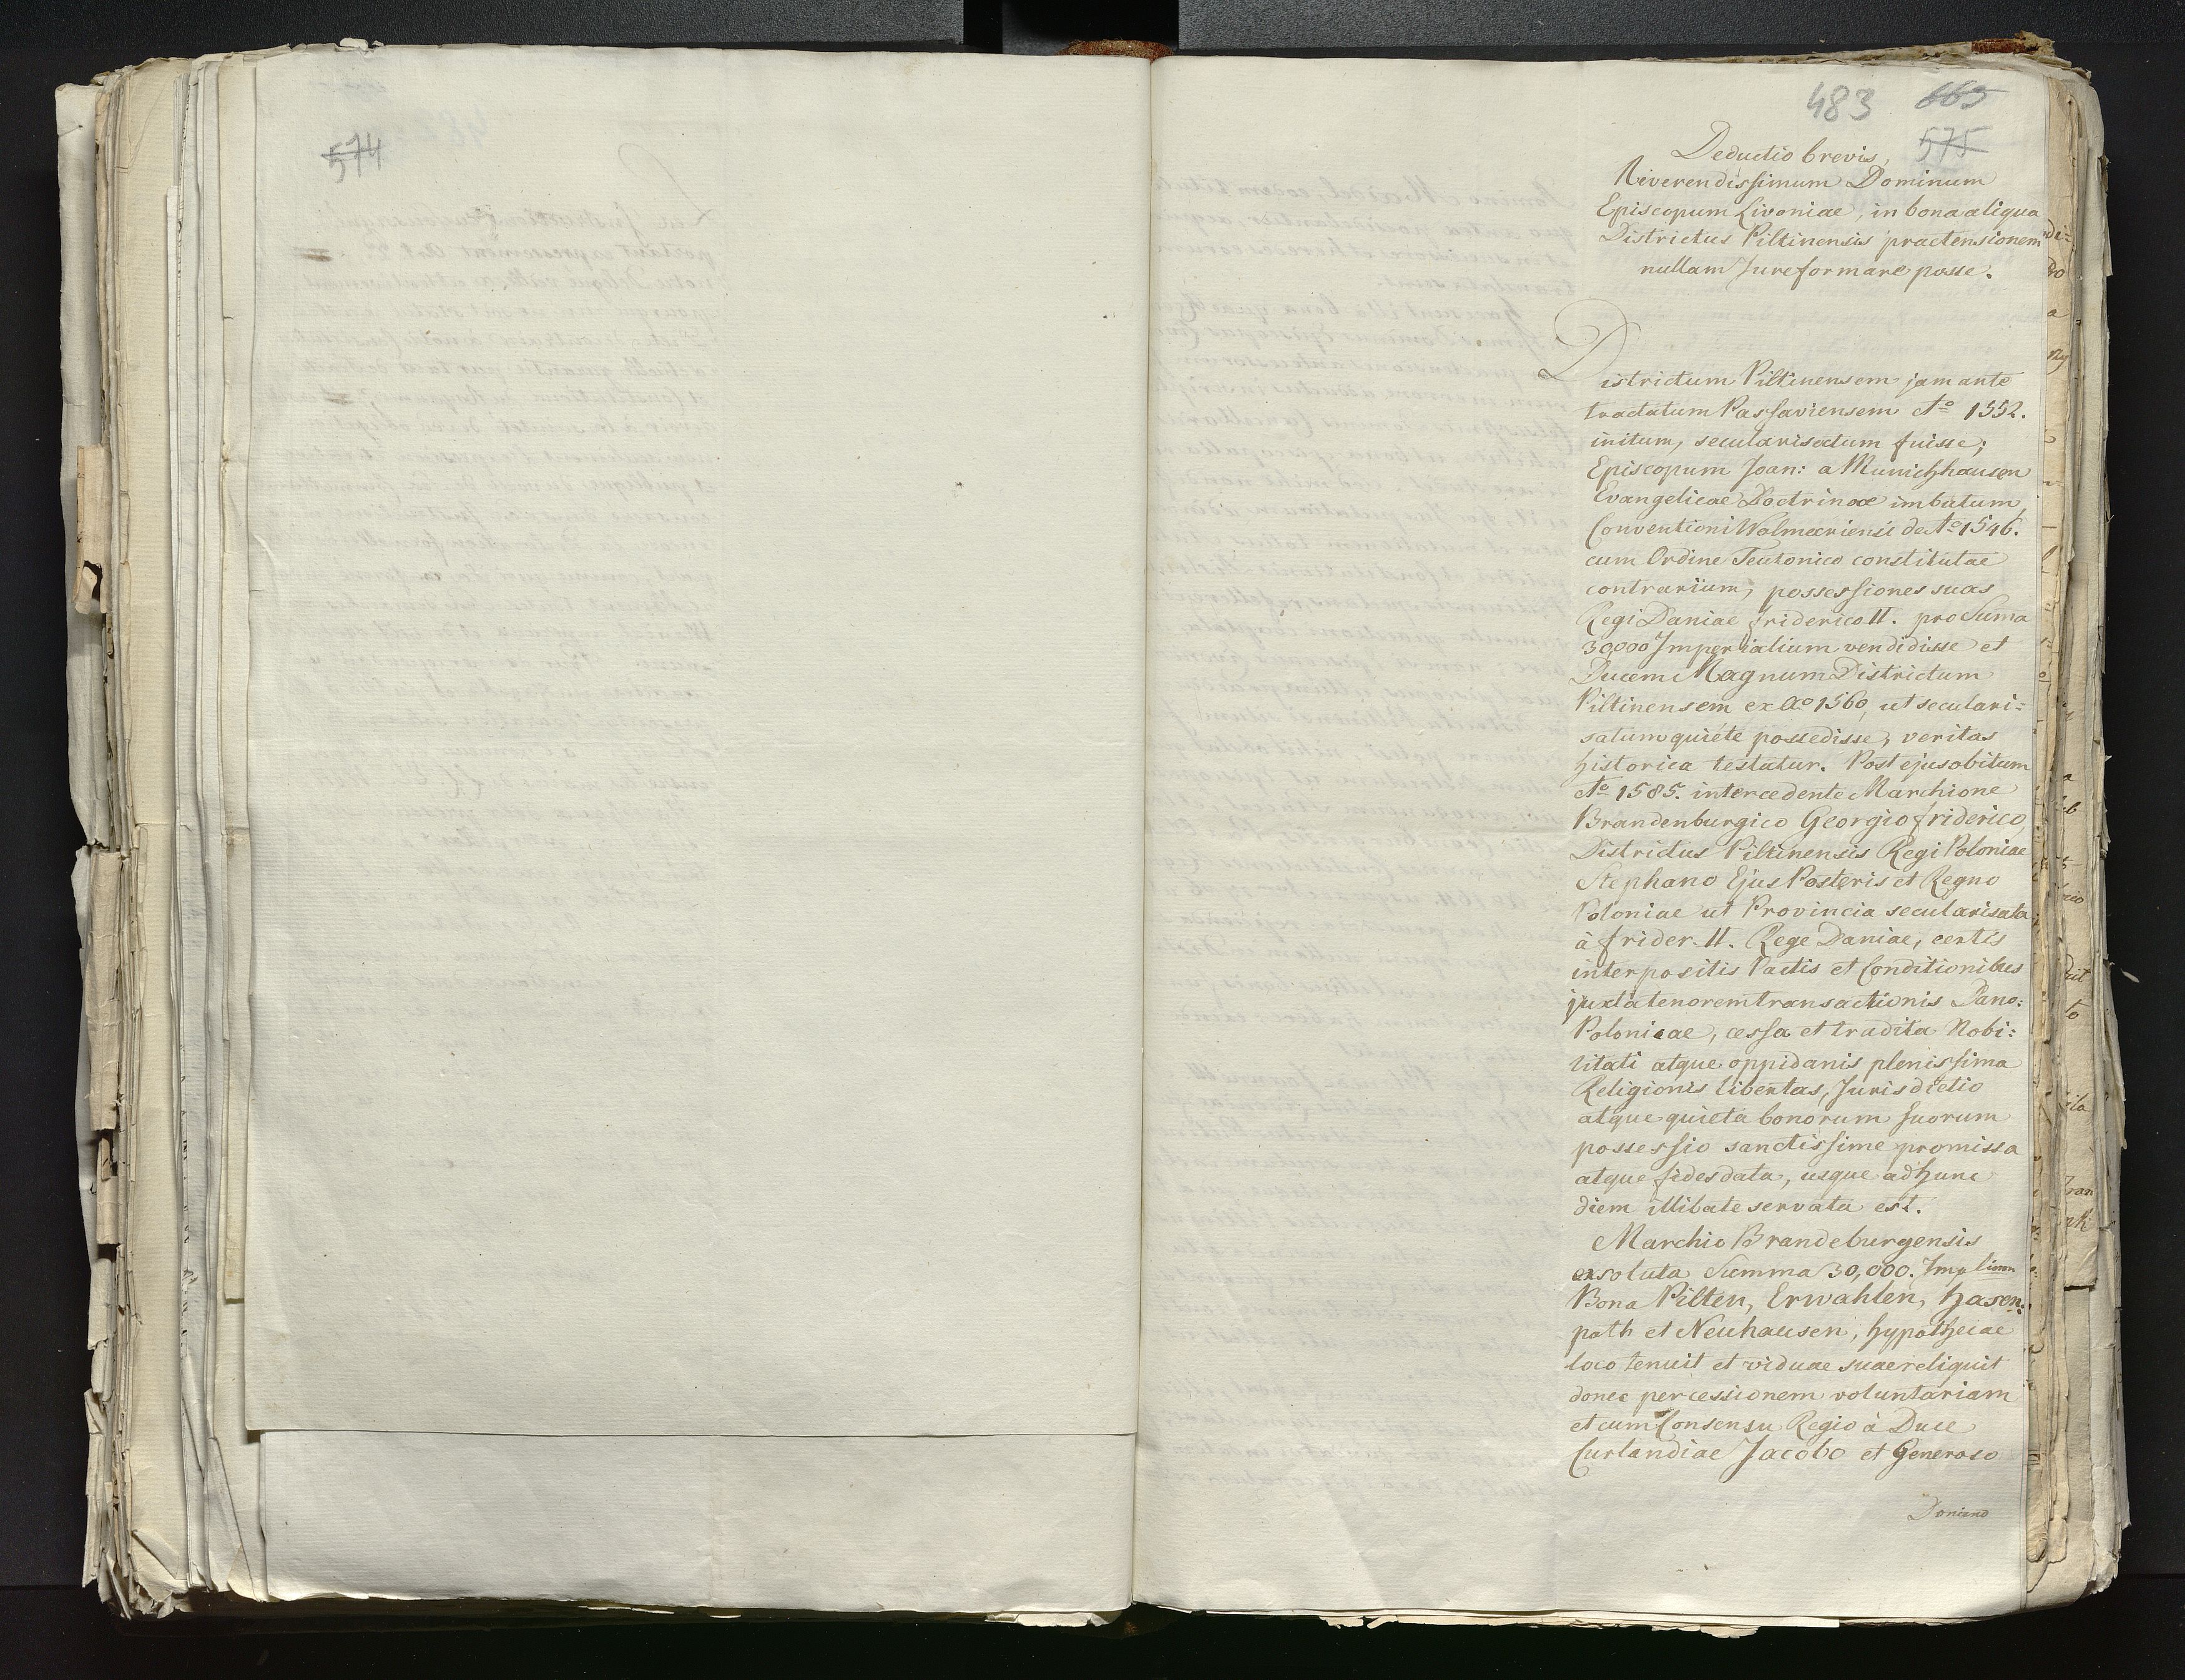 574
483 665
575
Deductio brevis,
Reverendissimum Dominum
Episcopum Livoniae, in bona aliqua
Districtus Piltinensis praetensionem
nullam Jure formare posse.
Districtum Piltinensem jam ante
tractatum Passaviensem Aº 1552.
initum, secularisatum fuisse;
Episcopum Joan: a Munichhausen
Evangelicae Doctrinae imbutum,
Conventioni Wolmeeriensi de Aº 1546.
cum Ordine Teutonico constitutae
contrarium, possessiones suas
Regi Daniae Friderico II. pro Suma
30000 Imperialium vendidisse et
Ducem Magnum Districtum
Piltinensem ex Aº 1560, ut seculari=
satum quiete possedisse, veritas
historica testatur. Post ejus obitum
Aº 1585. intercedente Marchione
Brandenburgico Georgio Friderico,
Districtus Piltinensis Regi Poloniae
Stephano Ejus Posteris et Regno
Poloniae ut Provincia secularisata
à Frider. II. Rege Daniae, certis
interpositis Pactis et Conditionibus
juxta tenorem transactionis Dano:
Polonicae, cessa et tradita Nobi:
litati atque oppidanis plenissima
Religionis libertas, Jurisdictio
atque quieta bonorum suorum
possessio sanctissime promissa
atque fides data, usque ad hunc
diem illibate servata est.
Marchio Brandeburgensis
exsoluta Summa 30,000. Implium
Bona Pilten, Erwahlen, Hasen:
poth et Neuhausen, hypothecae
loco tenuit et viduae suae reliquit
donec per cessionem voluntariam
et cum Consensu Regio à Duce
Curlandiae Jacobo et Generoso
Domino